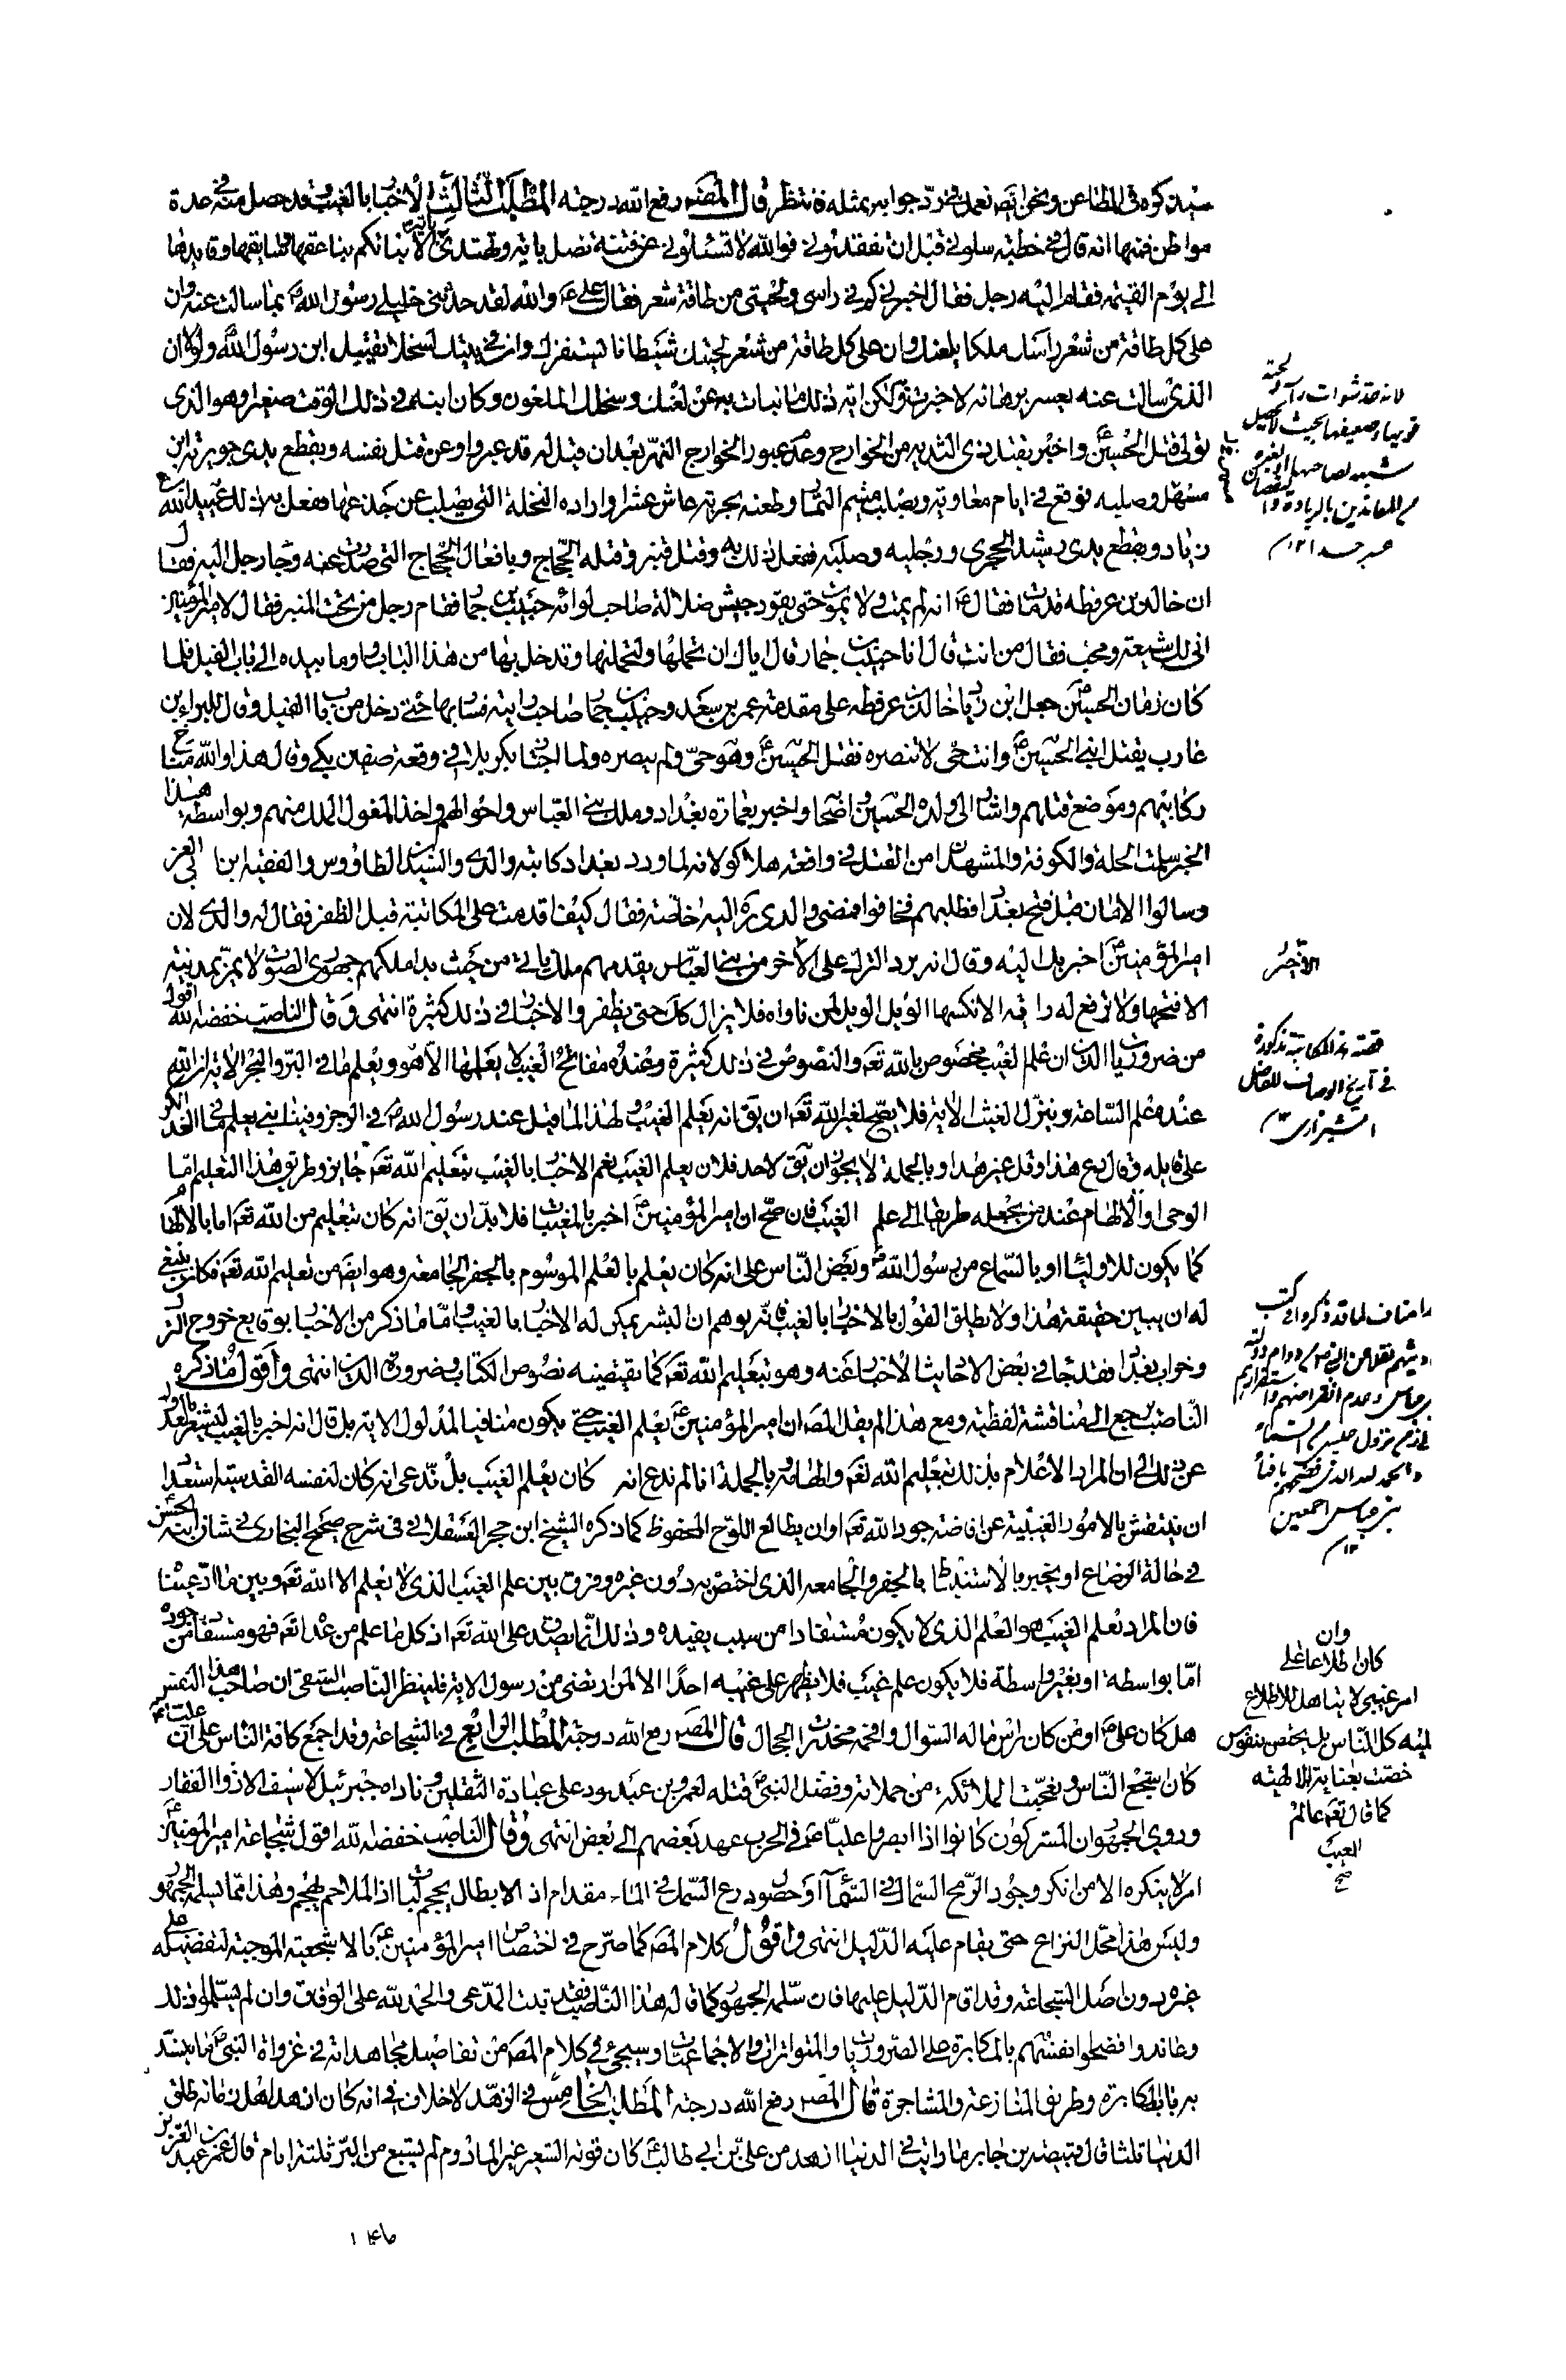 سيذكره في المطاعن ونحن ايضه نعمل في ردّ جوابه بمثله فانتظر قال المصنف رفع الله درجته المطلب الثالث الاخبار بالغيب وقد حصل منه في عدة
مواطن فمنها انه قال في خطبة سلوني قبل ان تفقدوني فوالله لا تسئلوني عن فئة تضل باية وتهتدى باية الا نبأتكم بناعقها وسايقها وقايدها
الى يوم القيمة فقام اليه رجل فقال اخبرني كم في راسى ولحيتى من طاقة شعر فقال على ع والله لقد حدثنى خليلى رسول الله ص بما سالت عنه وان
على كل طاقة من شعر راسك ملكا يلعنك وان على كل طاقة من شعر لحيتك شيطانا يستفزك وان في بيتك لسخلا يقتل ابن رسول الله ص ولولا ان
الذى سالت عنه يعسر برهانه لاخبرتك به ولكن اية ذلك ما نبات به عن لعنك وسخلك الملعون وكان ابنه في ذلك الوقت صغيرا وهو الذى
تولى قتل الحسين ع واخبر بقتل ذى الثدية من الخوارج وعدم عبور الخوارج النهر بعد ان قيل له قد عبروا وعن قتل نفسه وبقطع يدى جويرية بن
مسهر وصلبه فوقع في ايام معاوية وبصلب ميثم التمار وطعنه بحربة عاشر عشرا واراده النخلة التى يصلب عن جذعها ففعل به ذلك عبيد الله بن
زياد وبقطع يدى رشيد الهجرى ورجليه وصلبه ففعل ذلك به وقتل قنبر فقتله الحجاج وبافعال الحجاج التى صدرت عنه وجاء رجل اليه فقال
ان خالد بن عرفطة قد مات فقال ع انه لم يمت ولا يموت حتى يقود جيش ضلالة صاحب لوائه حبيب بن جمار فقام رجل من تحت المنبر فقال يا امير المؤمنين
انى لك شيعة ومحب فقال من انت قال انا حبيب بن جمار قال اياك ان تحملها ولتحملنها وتدخل بها من هذا الباب واومأ بيده الى باب الفيل فلما
كان زمان الحسين ع جعل ابن زياد خالد بن عرفطة على مقدمة عمر بن سعد وحبيب بن جمار صاحب رايته فسار بها حتى دخل من باب الفيل وقال للبراء بن
عازب يقتل ابنى الحسين ع وانت حى لا تنصره فقتل الحسين ع وهو حىّ ولم ينصره ولما اجتاز بكربلا في وقعة صفين بكى وقال هذا والله مناخ
ركابهم وموضع قتلهم واشار الى ولده الحسين واصحابه واخبر بعمارة بغداد وملك بنى العباس واحوالهم واخذ المغول الملك منهم وبواسطة هذا
الخبر سلمت الحلة والكوفة والمشهدان من القتل في واقعة هلاكو لانه لما ورد بغداد كاتبه والدى والسيد ابن الطاووس والفقيه ابن ابى العز
وسالوا الامان قبل فتح بغداد فطلبهم فخافوا فمضى والدى ره اليه خاصّة فقال كيف اقدمت على المكاتبة قبل الظفر فقال له والدى لان
امير المؤمنين ع اخبر بك اليه وقال انه يرد الترك على الاخر من بنى العباس يقدمهم ملك ياتى من حيث بدا ملكهم جهورى الصوت لا يمر بمدينة
الا فتحها ولا ترفع له راية الا نكسها الويل الويل لمن ناواه فلا يزال كك حتى يظفر والاخبار في ذلك كثيرة انتهى وقال الناصب خفضه الله اقول
من ضروريات الدين ان علم الغيب مخصوص بالله تعم والنصوص في ذلك كثيرة وعنده مفاتح الغيب لا يعلمها الّا هو ويعلم ما في البر والبحر الاية ان الله
عنده علم الساعة وينزل الغيث الاية فلا يصح لغير الله تعم ان يق انه يعلم الغيب ولهذا لما قيل عند رسول الله ص في الرجز وفينا نبى يعلم ما في الغد انكر
على قايله وقال دع هذا وقل غير هذا وبالجملة لا يجوز ان يق لاحد فلان يعلم الغيب نعم الاخبار بالغيب بتعليم الله تعم جايز وطريق هذا التعليم امّا
الوحى او الالهام عند من يجعله طريقا الى علم الغيب فان صح ان امير المؤمنين ع اخبر بالمغيبات فلا بد ان يق انه كان بتعليم من الله تعم اما بالالهام
كما يكون للاولياء او بالسماع من رسول الله ص وبعض الناس على انه كان يعلم بالعلم الموسوم بالجفر والجامعة وهو ايضه من تعليم الله تعم فكان ينبغى
له ان يبين حقيقة هذا ولا يطلق القول بالاخبار بالغيب فانه يوهم ان البشر يمكن له الاخبار بالغيب واما ما ذكر من الاخبار بوقايع خروج الترك
وخراب بغداد فقد جاء في بعض الاحاديث الاخبار عنه وهو بتعليم الله تعم كما يقتضيه نصوص الكتاب وضرورة الدين انتهى واقول ما ذكره
الناصب يرجع الى مناقشة لفظية ومع هذا لم يقل المصه ان امير المؤمنين ع يعلم الغيب حتى يكون منافيا لمدلول الاية بل قال انه اخبر بالغيب ليشعر بالعدول
عن ذلك الى ان المراد الاعلام بذلك بتعليم الله تعم والهامه وبالجملة انا لم ندع انه كان يعلم الغيب بل ندّعى انه كان لنفسه القدسية استعداد
ان ينتقش بالامور الغيبية عن افاضة جود الله تعم او ان يطالع اللوح المحفوظ كما ذكره الشيخ ابن حجر العسقلانى في شرح صحيح البخارى في شان ابنه الحسن ع
في حالة الرضاع او يخبر بالاستنباط بالجفر والجامعه الذى اختص به دون غيره وفرق بين علم الغيب الذى لا يعلم الا الله تعم وبين ما ادّعينا
فان المراد بعلم الغيب هو العلم الذى لا يكون مستفادا من سبب يفيده وذلك انما يصدق على الله تعم اذ كل ما علم من عداه تعم فهو مستفاد من جوده
امّا بواسطة او بغير واسطة فلا يكون علم غيب فلا يظهر على غيبه احدًا الا لمن ارتضى من رسول الاية فلينظر الناصب الشقى ان صاحب هذا النفس
هل كان على ع او من كان راس ماله السؤال وافحمه مخدرات الحجال قال المصنف رفع الله درجته المطلب الرابع في الشجاعة وقد اجمع كافة الناس على ان عليا ع
كان اشجع الناس وتعجبت الملائكة من حملاته وفضل النبى ص قتله لعمرو بن عبدود على عبادة الثقلين وناداه جبرئيل لا سيف الا ذو الفقار
وروى الجمهور ان المشركون كانوا اذا ابصروا عليّا ع في الحرب عهد بعضهم الى بعض انتهى وقال الناصب خفضه الله اقول شجاعة امير المؤمنين ع
امر لا ينكره الا من انكر وجود الرمح السماك في السماء او حصول درع السمك في الماء مقدام اذ الابطال يحجم لباث اذ الملاحم تهجم وهذا مما يسلمه الجمهور
وليس هذا محل النزاع حتى يقام عليه الدليل انتهى واقول كلام المصه كما صرح في اختصاص امير المؤمنين ع بالاشجعية الموجبة لتفضيله على
غيره دون اصل الشجاعة وقد اقام الدليل عليها فان سلمه الجمهور كما قاله هذا الناصب فقد ثبت المدعى والحمد لله على الوفاق وان لم يسلموا ذلك
وعاندوا فضحوا انفسهم بالمكابرة على الضروريات والمتواترات والاجماعيات وسيجئ في كلام المصه من تفاصيل مجاهداته في غزواة النبى ص ما ينسد
به باب المكابرة وطريق المنازعة والمشاجرة قال المصنف رفع الله درجته المطلب الخامس في الزهد لا خلاف في انه كان ازهد اهل زمانه طلق
الدنيا ثلثا قال قبيصة بن جابر ما رايت في الدنيا ازهد من على بن ابى طالب ع كان قوته الشعير غير المادوم ولم يشبع من البر ثلثة ايام قال عمر بن عبد العزيز
الاخر
قصة هذا المكاتبة مذكورة
في تاريخ الوصاف للفاضل
الشيرازى ١٢
بنى عباس اجمعين
١٢
وان
كان اطلاعا على
امر غيبى لا يتاهل للاطلاع
عليه كل الناس بل يختص بنفوس
خصت بعناية الالهية
كما قال تعم عالم
الغيب
صح